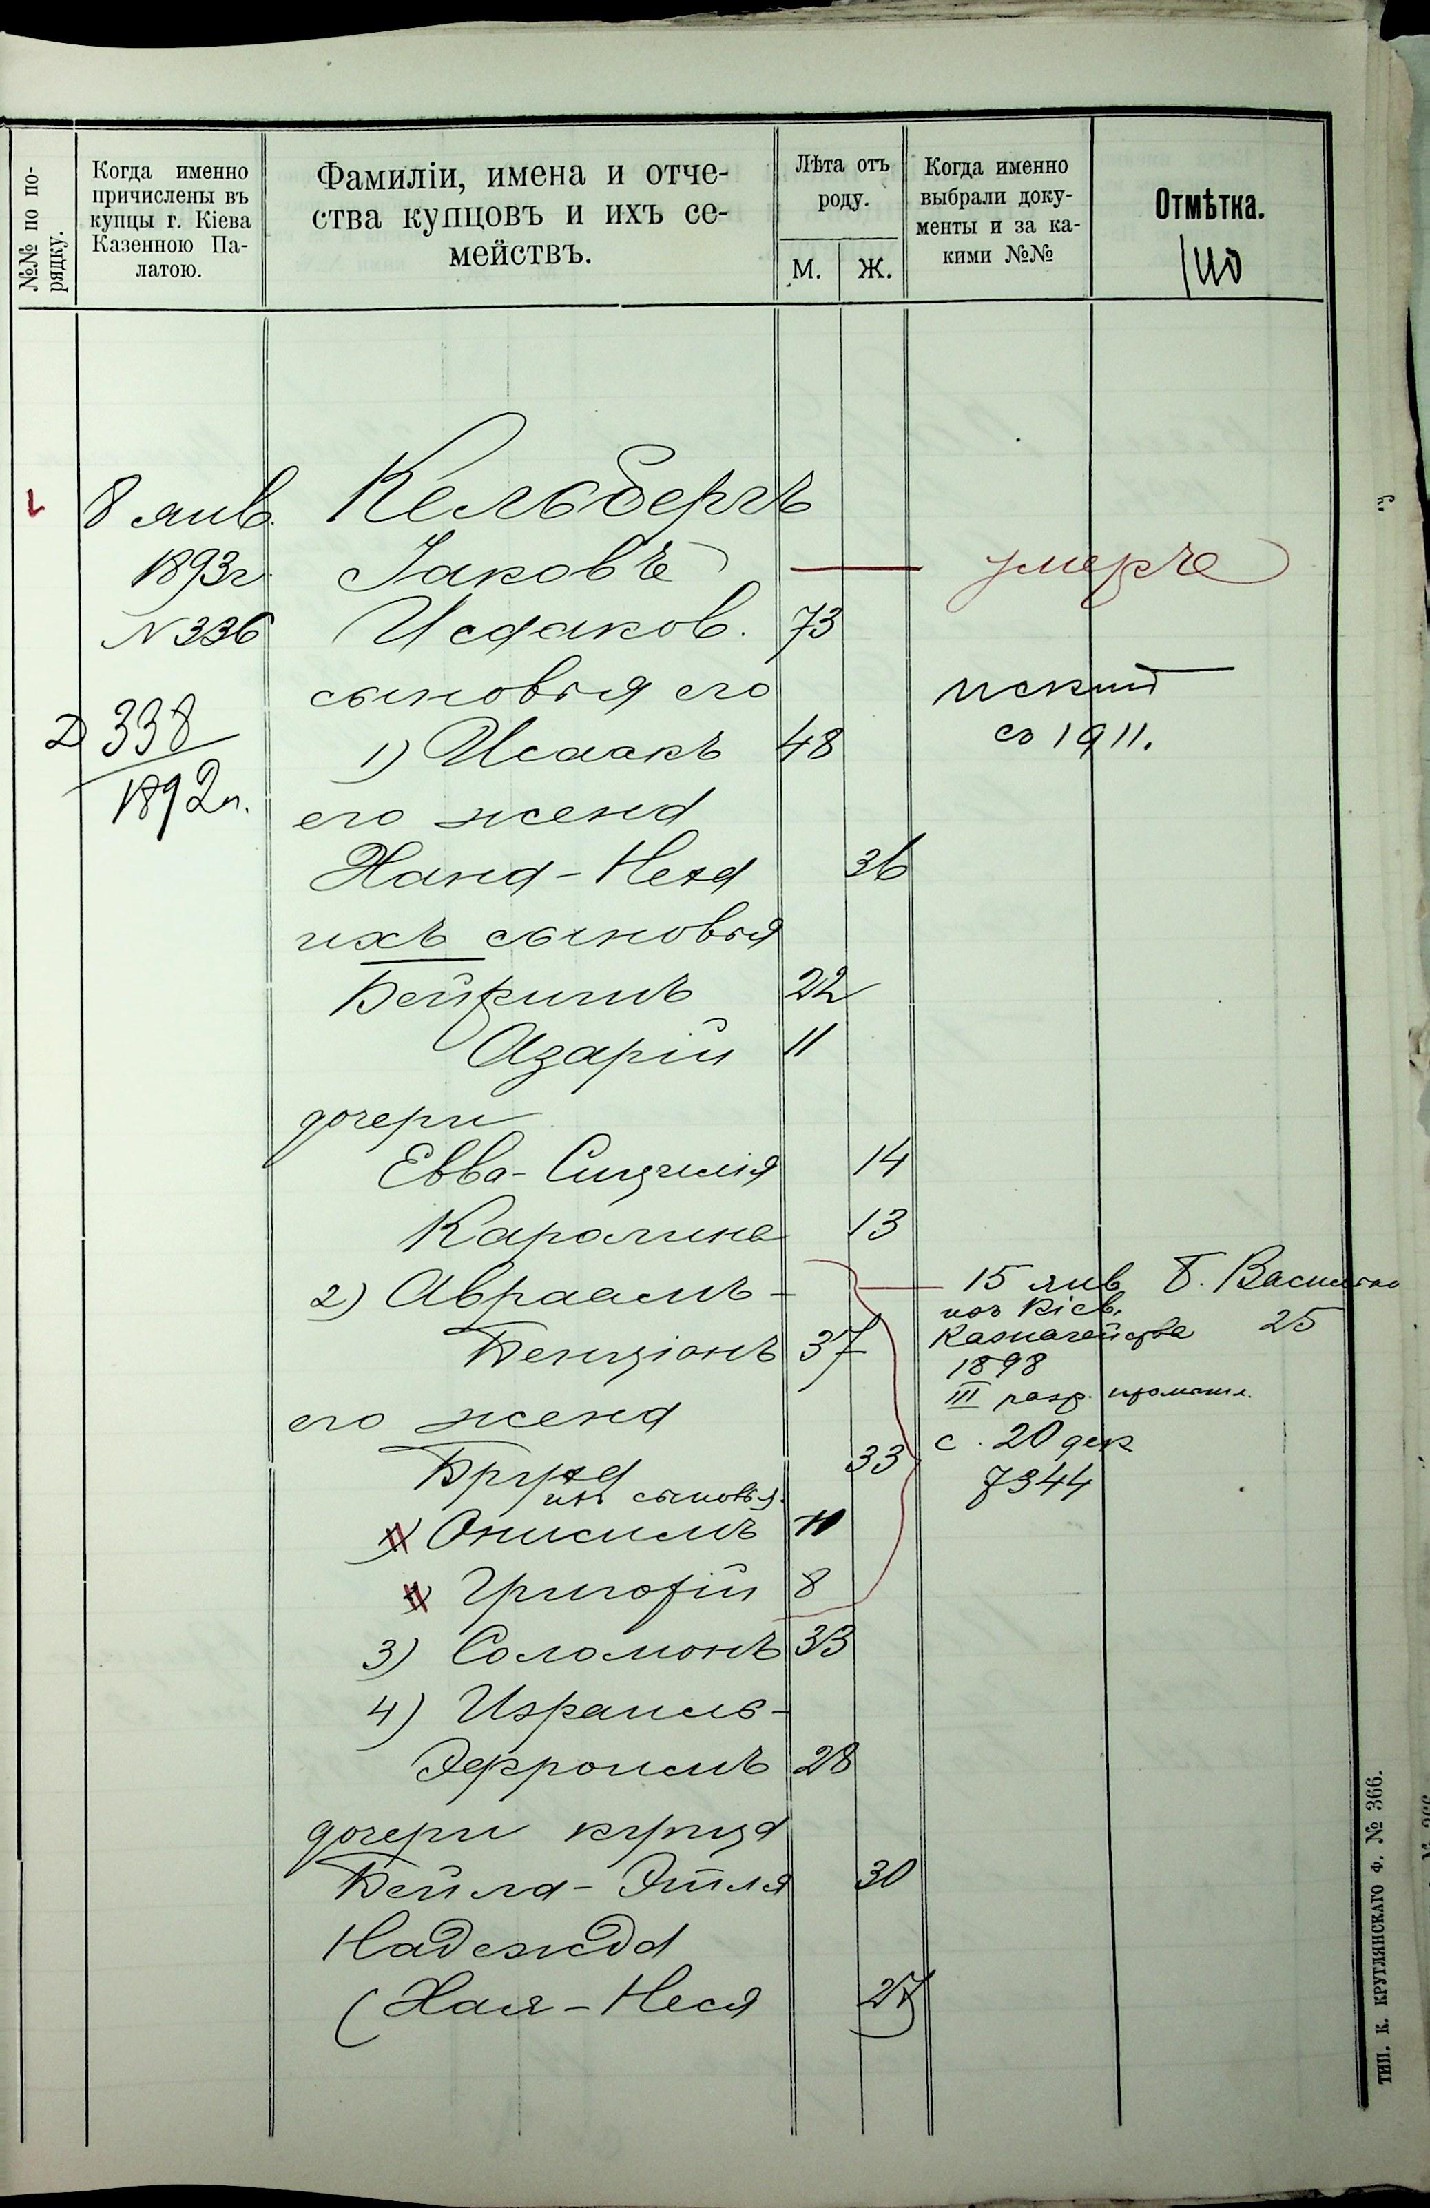 №№ по по-
рядку.
Когда именно
причислены въ
купцы г. Кіева
Казенною Па-
латою.
Фамиліи, имена и отче-
ства купцовъ и ихъ се-
мействъ.
Лѣта отъ
роду.
М.
Ж.
Когда именно
выбрали доку-
менты и за ка-
кими №№
Отмѣтка.
8 янв.
1893г.
N 336
Д 338
1892г.
Кельбергъ
Іаковъ
умерче
Исааков. 73
сыновья его
1) Исаакъ 48
съ 1911.
его жена
Хана-Неха 36
ихъ сыновья
Бейнишъ 22
Азарій 11
дочери
Евва-Сицилія 14
Каролина 13
2) Авраамъ-
Бенціонъ 37
15 янв Б. Василько
из Кіев.
Казначейства 25
1898
III разр. промысл.
с. 20 дек
7344
его жена
Бруха 33
их сыновья
1) Онисимъ 11
Григорій 8
3) Соломонъ 33
4) Израиль-
Эфроимъ 28
дочери купца
Бейла-Этля 30
Надежда
(Хая-Неся 27
ТИП. К. КРУГЛЯНСКАГО Ф. № 366.